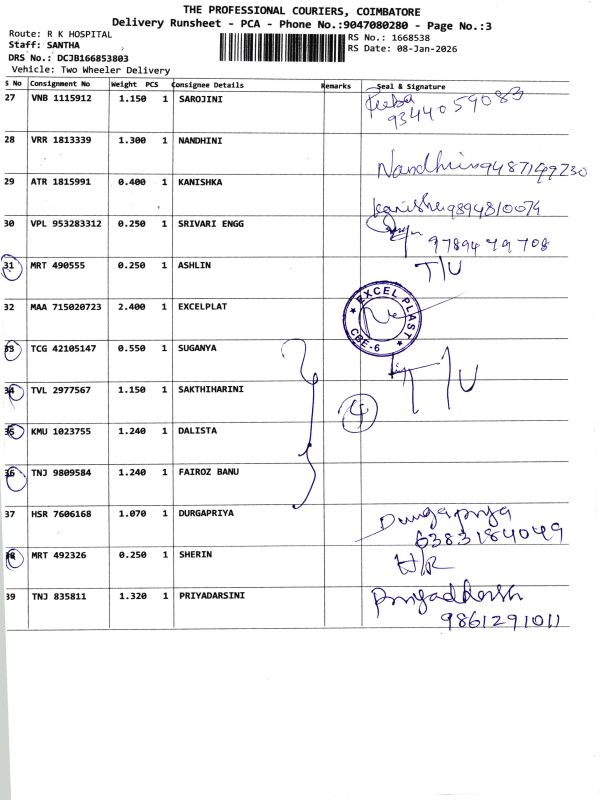 THE PROFESSIONAL COURIERS, COIMBATORE
Delivery Runsheet - PCA - Phone No.:9047080280 - Page No.:3
Route: R K HOSPITAL
Staff: SANTHA
DRS No.: DCJB166853803
Vehicle: Two Wheeler Delivery
RS No.: 1668538
RS Date: 08-Jan-2026
S No Consignment No Weight PCS Consignee Details Remarks Seal & Signature
27 VNB 1115912 1.150 1 SAROJINI
9344059083
28 VRR 1813339 1.300 1 NANDHINI
Nandhini
29 ATR 1815991 0.400 1 KANISHKA
30 VPL 953283312 0.250 1 SRIVARI ENGG
9789479708
31 MRT 490555 0.250 1 ASHLIN T/U
32 MAA 715020723 2.400 1 EXCELPLAT
EXCEL PLAST
CBE-6
33 TCG 42105147 0.550 1 SUGANYA
T/U
34 TVL 2977567 1.150 1 SAKTHIHARINI
4
35 KMU 1023755 1.240 1 DALISTA
36 TNJ 9809584 1.240 1 FAIROZ BANU
37 HSR 7606168 1.070 1 DURGAPRIYA
Durgapriya
6383184049
38 MRT 492326 0.250 1 SHERIN
H/R
39 TNJ 835811 1.320 1 PRIYADARSINI
9861291011